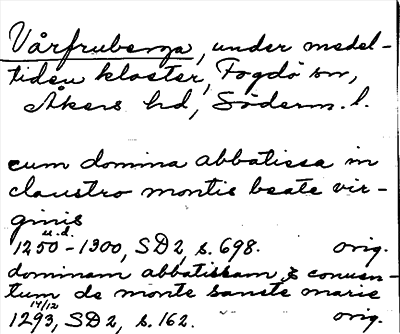 Vårfruberga, under medel-
tiden kloster, Fogdö sn,
Åkers hd, Söderm. l.
cum domina abbatissa in
claustro montis beate vir-
ginis
u.d.
1250-1300, SD2, s. 698. orig.
dominam abbatissam & conuen-
tum de monte sancte marie
14/12
1293, SD2, s. 162. orig.